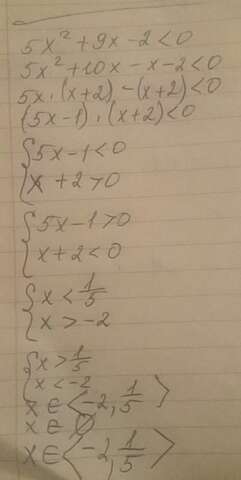 5x² + 9x - 2 < 0
5x² + 10x - x - 2 < 0
5x · (x + 2) - (x + 2) < 0
(5x - 1) · (x + 2) < 0
{ 5x - 1 < 0
{ x + 2 > 0
{ 5x - 1 > 0
{ x + 2 < 0
{ x < 1/5
{ x > -2
{ x > 1/5
{ x < -2
x ∈ ⟨-2, 1/5⟩
x ∈ ∅
x ∈ ⟨-2, 1/5⟩